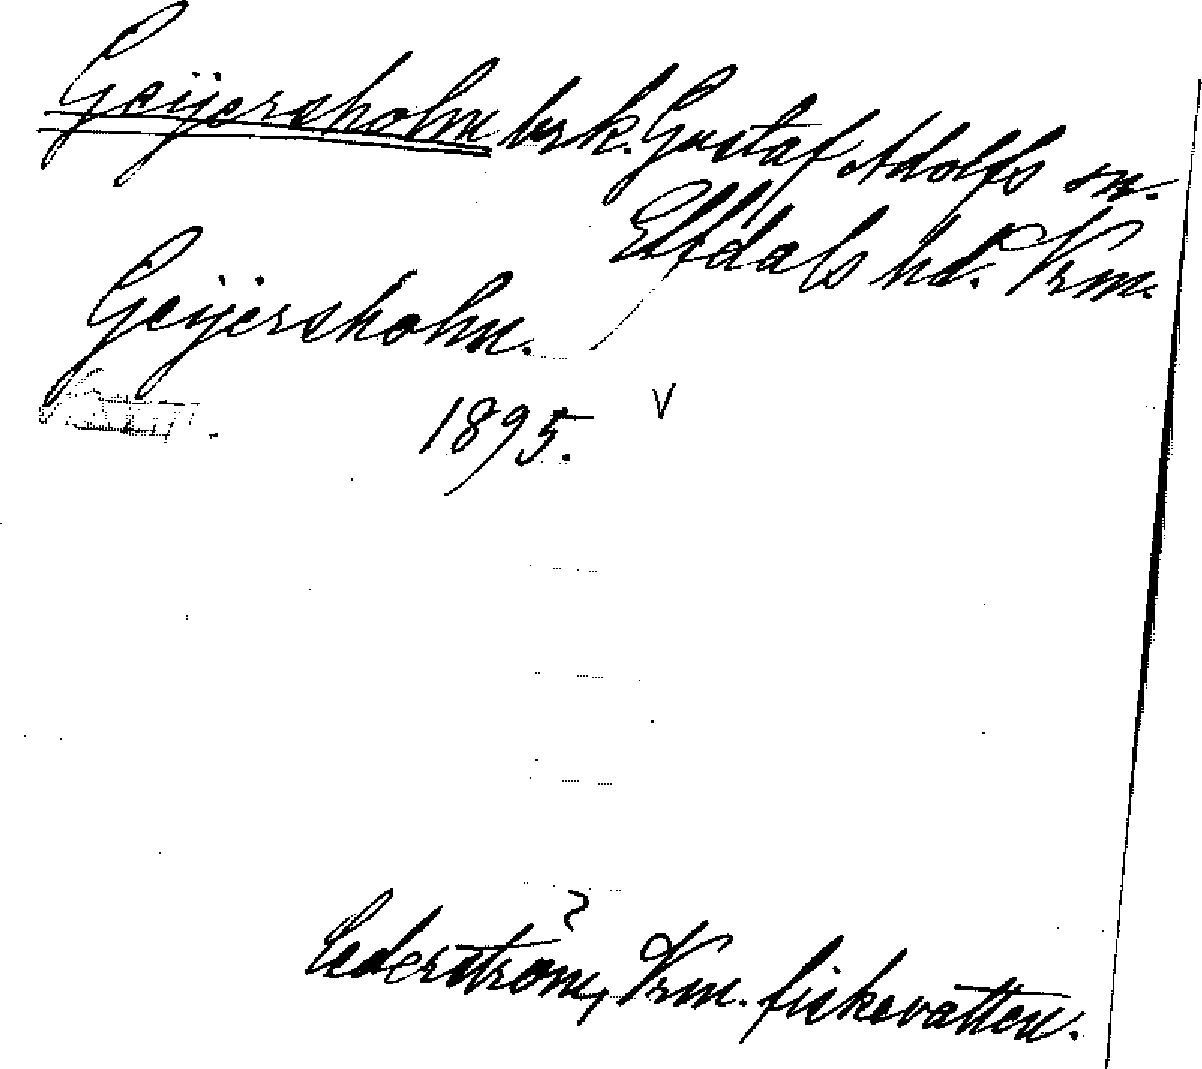 Geijersholm brk. Gustaf Adolfs sn.
Elfdals hd. Vrm.
Geijersholm.
1895. V
Cederström, Vrm. fiskevatten.